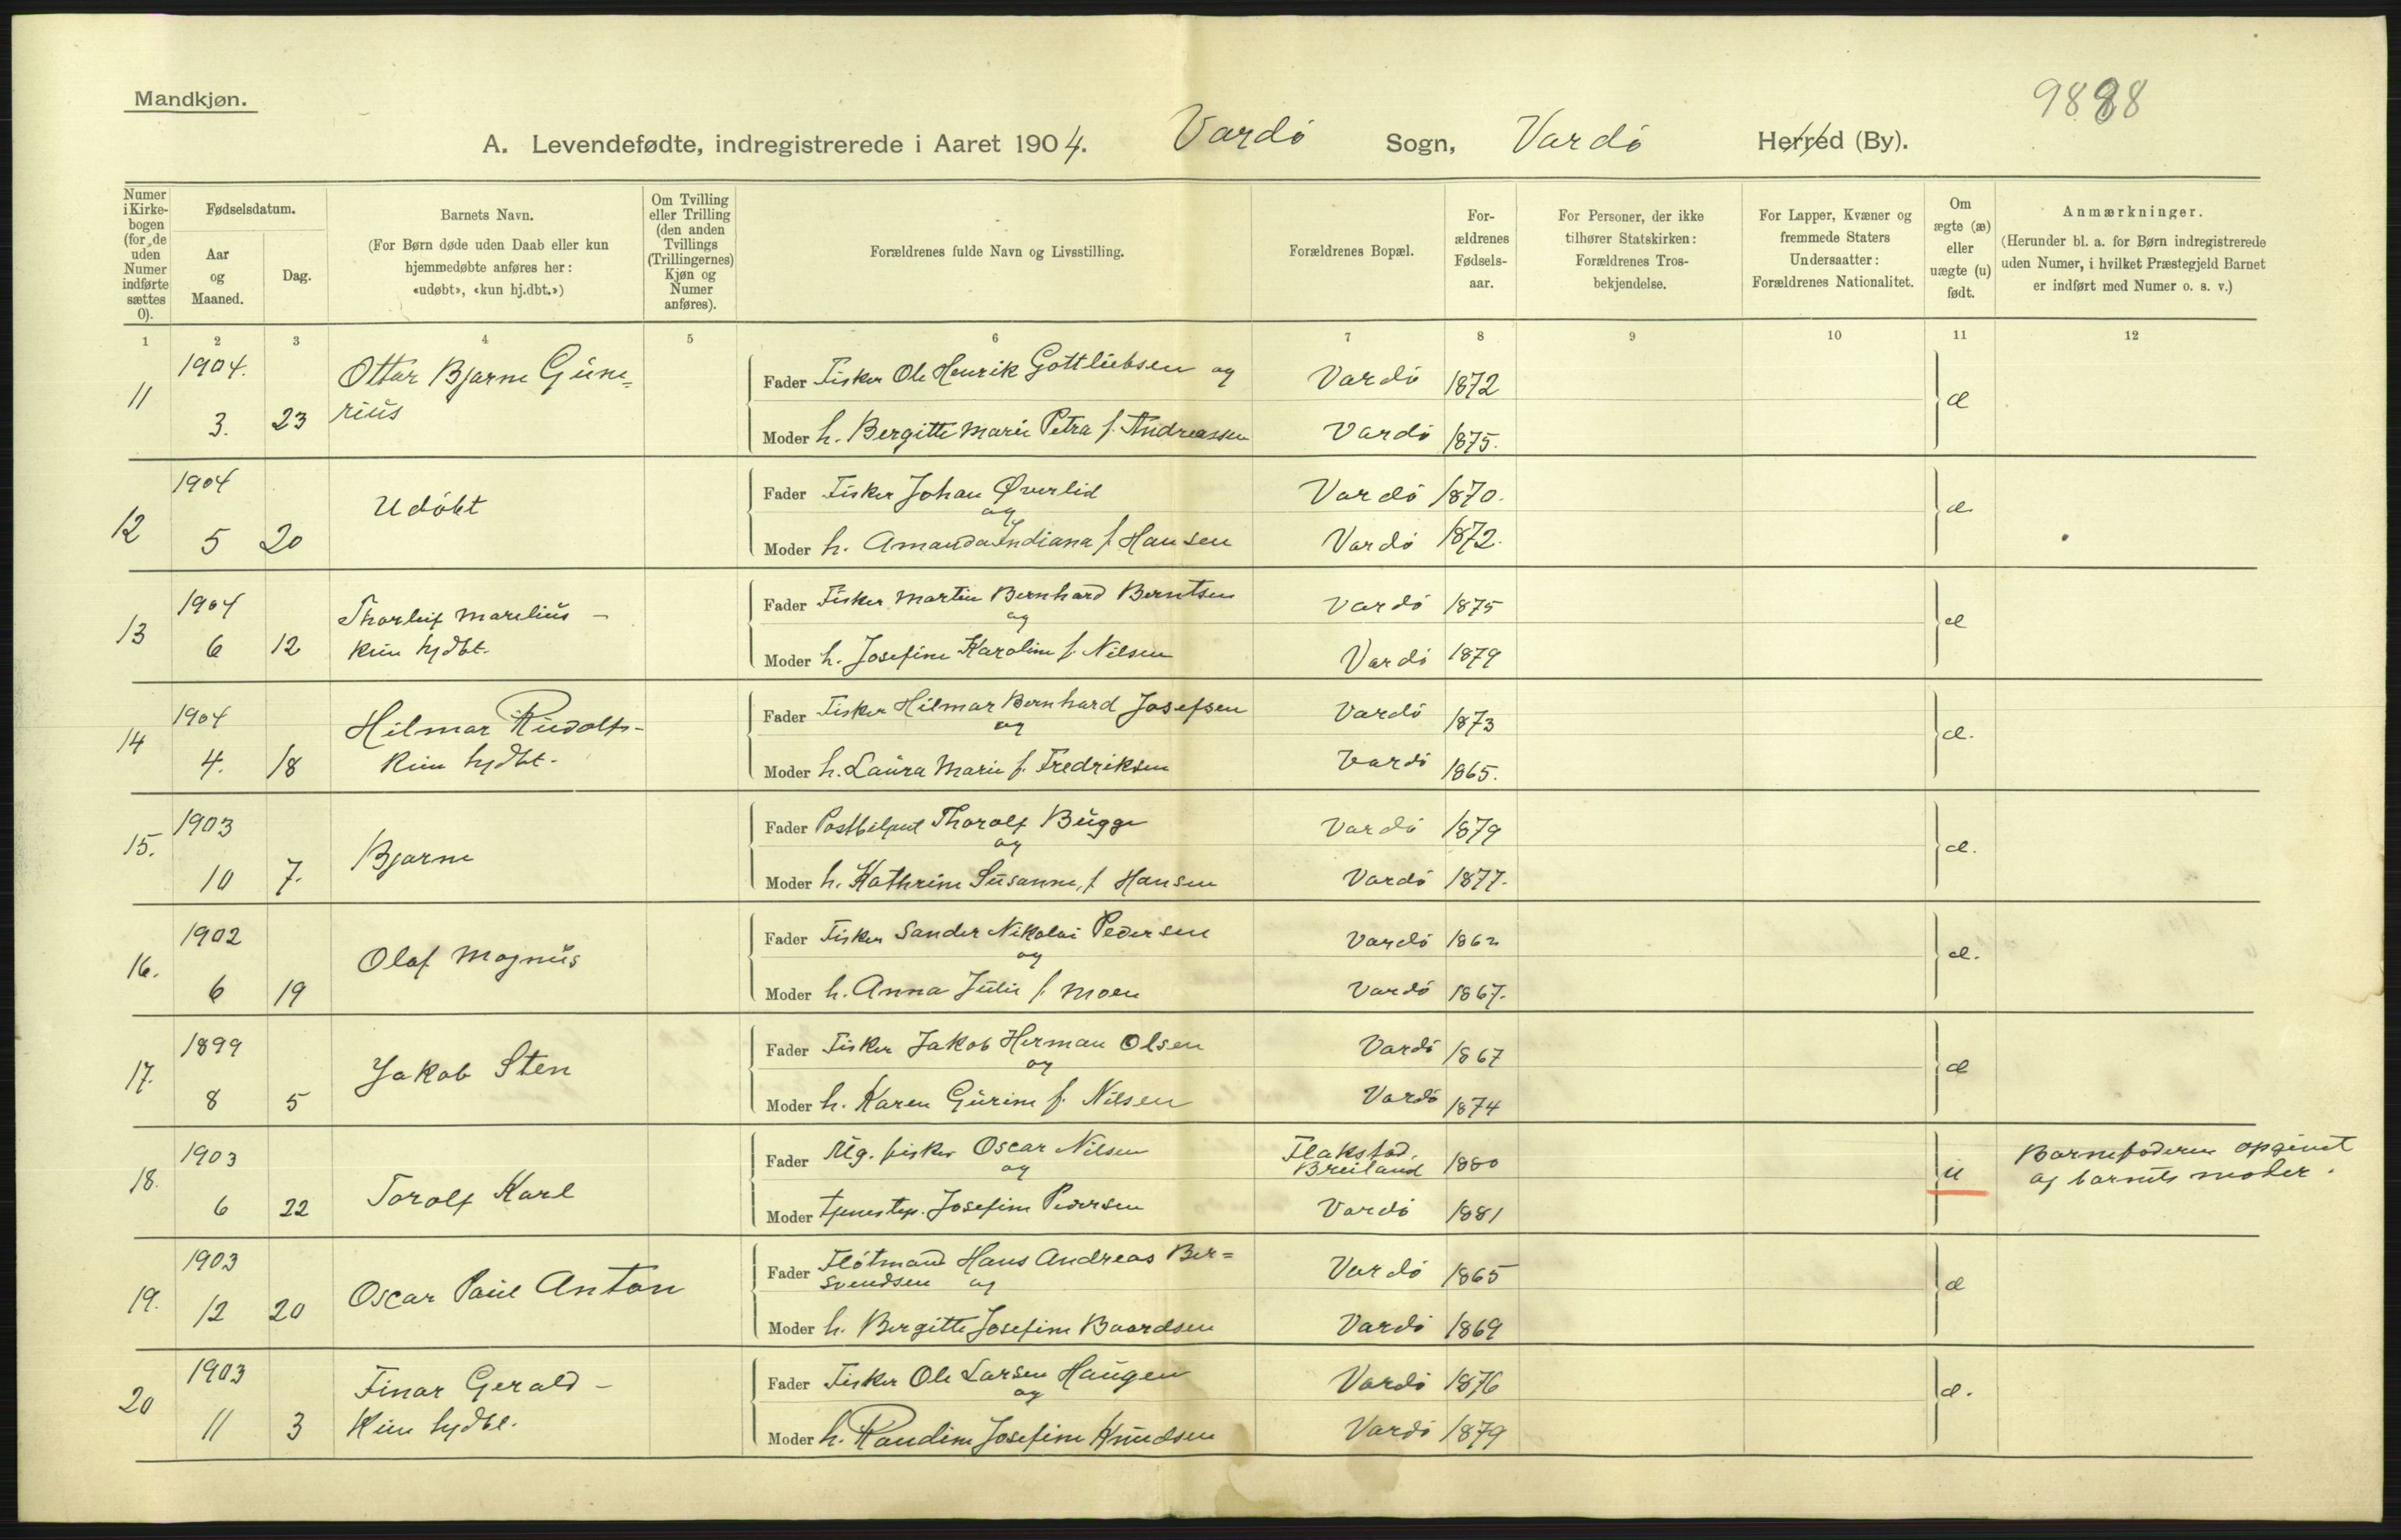 Mandkjøn.
A. Levendefødte, indregistrerede i Aaret 1904. Vardø Sogn, Vardø Herred (By).
Numer i Kirkebogen (for de uden Numer indførte sættes 0).
Fødselsdatum.
Aar og Maaned.
Dag.
Barnets Navn.
(For Børn døde uden Daab eller kun hjemmedøbte anføres her: «udøbt», «kun hj.dbt.»)
Om Tvilling eller Trilling (den anden Tvillings (Trillingernes) Kjøn og Numer anføres).
Forældrenes fulde Navn og Livsstilling.
Forældrenes Bopæl.
Forældrenes Fødselsaar.
For Personer, der ikke tilhører Statskirken: Forældrenes Trosbekjendelse.
For Lapper, Kvæner og fremmede Staters Undersaatter: Forældrenes Nationalitet.
Om ægte (æ) eller uægte (u) født.
Anmærkninger.
(Herunder bl. a. for Børn indregistrerede uden Numer, i hvilket Præstegjeld Barnet er indført med Numer o. s. v.)
1 2 3 4 5 6 7 8 9 10 11 12
11 1904. 3. 23 Ottar Bjarne Gunerius
Fader Fisker Ole Henrik Gottliebsen og Vardø 1872 æ
Moder h. Bergitte Marie Petra f. Andreassen Vardø 1875.
12 1904 5 20 Udøbt
Fader Fisker Johan Øverlid og Vardø 1870. æ
Moder h. Amanda Indiana f. Hansen Vardø 1872.
13 1904 6 12 Thorleif Marelius - kun hjdbt.
Fader Fisker Martin Bernhard Berntsen og Vardø 1875 æ
Moder h. Josefine Karoline f. Nilsen Vardø 1879
14 1904 4. 18 Hilmar Rudolf - kun hjdbt.
Fader Fisker Hilmar Bernhard Josefsen og Vardø 1873 æ.
Moder h. Laura Marie f. Fredriksen Vardø 1865.
15. 1903 10 7. Bjarne
Fader Postbetjent Thorolf Bugge og Vardø 1879 æ.
Moder h. Kathrine Susanne, f. Hansen Vardø 1877.
16. 1902 6 19 Olaf Magnus
Fader Fisker Sander Nikolai Pedersen og Vardø 1862 æ.
Moder h. Anna Julie f. Moen Vardø 1867.
17. 1899 8 5 Jakob Sten
Fader Fisker Jakob Herman Olsen og Vardø 1867 æ
Moder h. Karen Gurine f. Nilsen Vardø 1874
18. 1903 6 22 Torolf Karl
Fader Ug. fisker Oscar Nilsen og Flakstad, Breiland 1880 u Barnefaderen opgivet af barnets moder.
Moder tjenestep. Josefine Pedersen Vardø 1881
19. 1903 12 20 Oscar Paul Anton
Fader Fløtmand Hans Andreas Ber=
Svendsen og Vardø 1865 æ
Moder h. Bergitte Josefine Baardsen Vardø 1869
20 1903 11 3 Finar Gerald - Kun hjdbt.
Fader Fisker Ole Larsen Haugen og Vardø 1876 æ.
Moder h. Randine Josefine Knudsen Vardø 1879